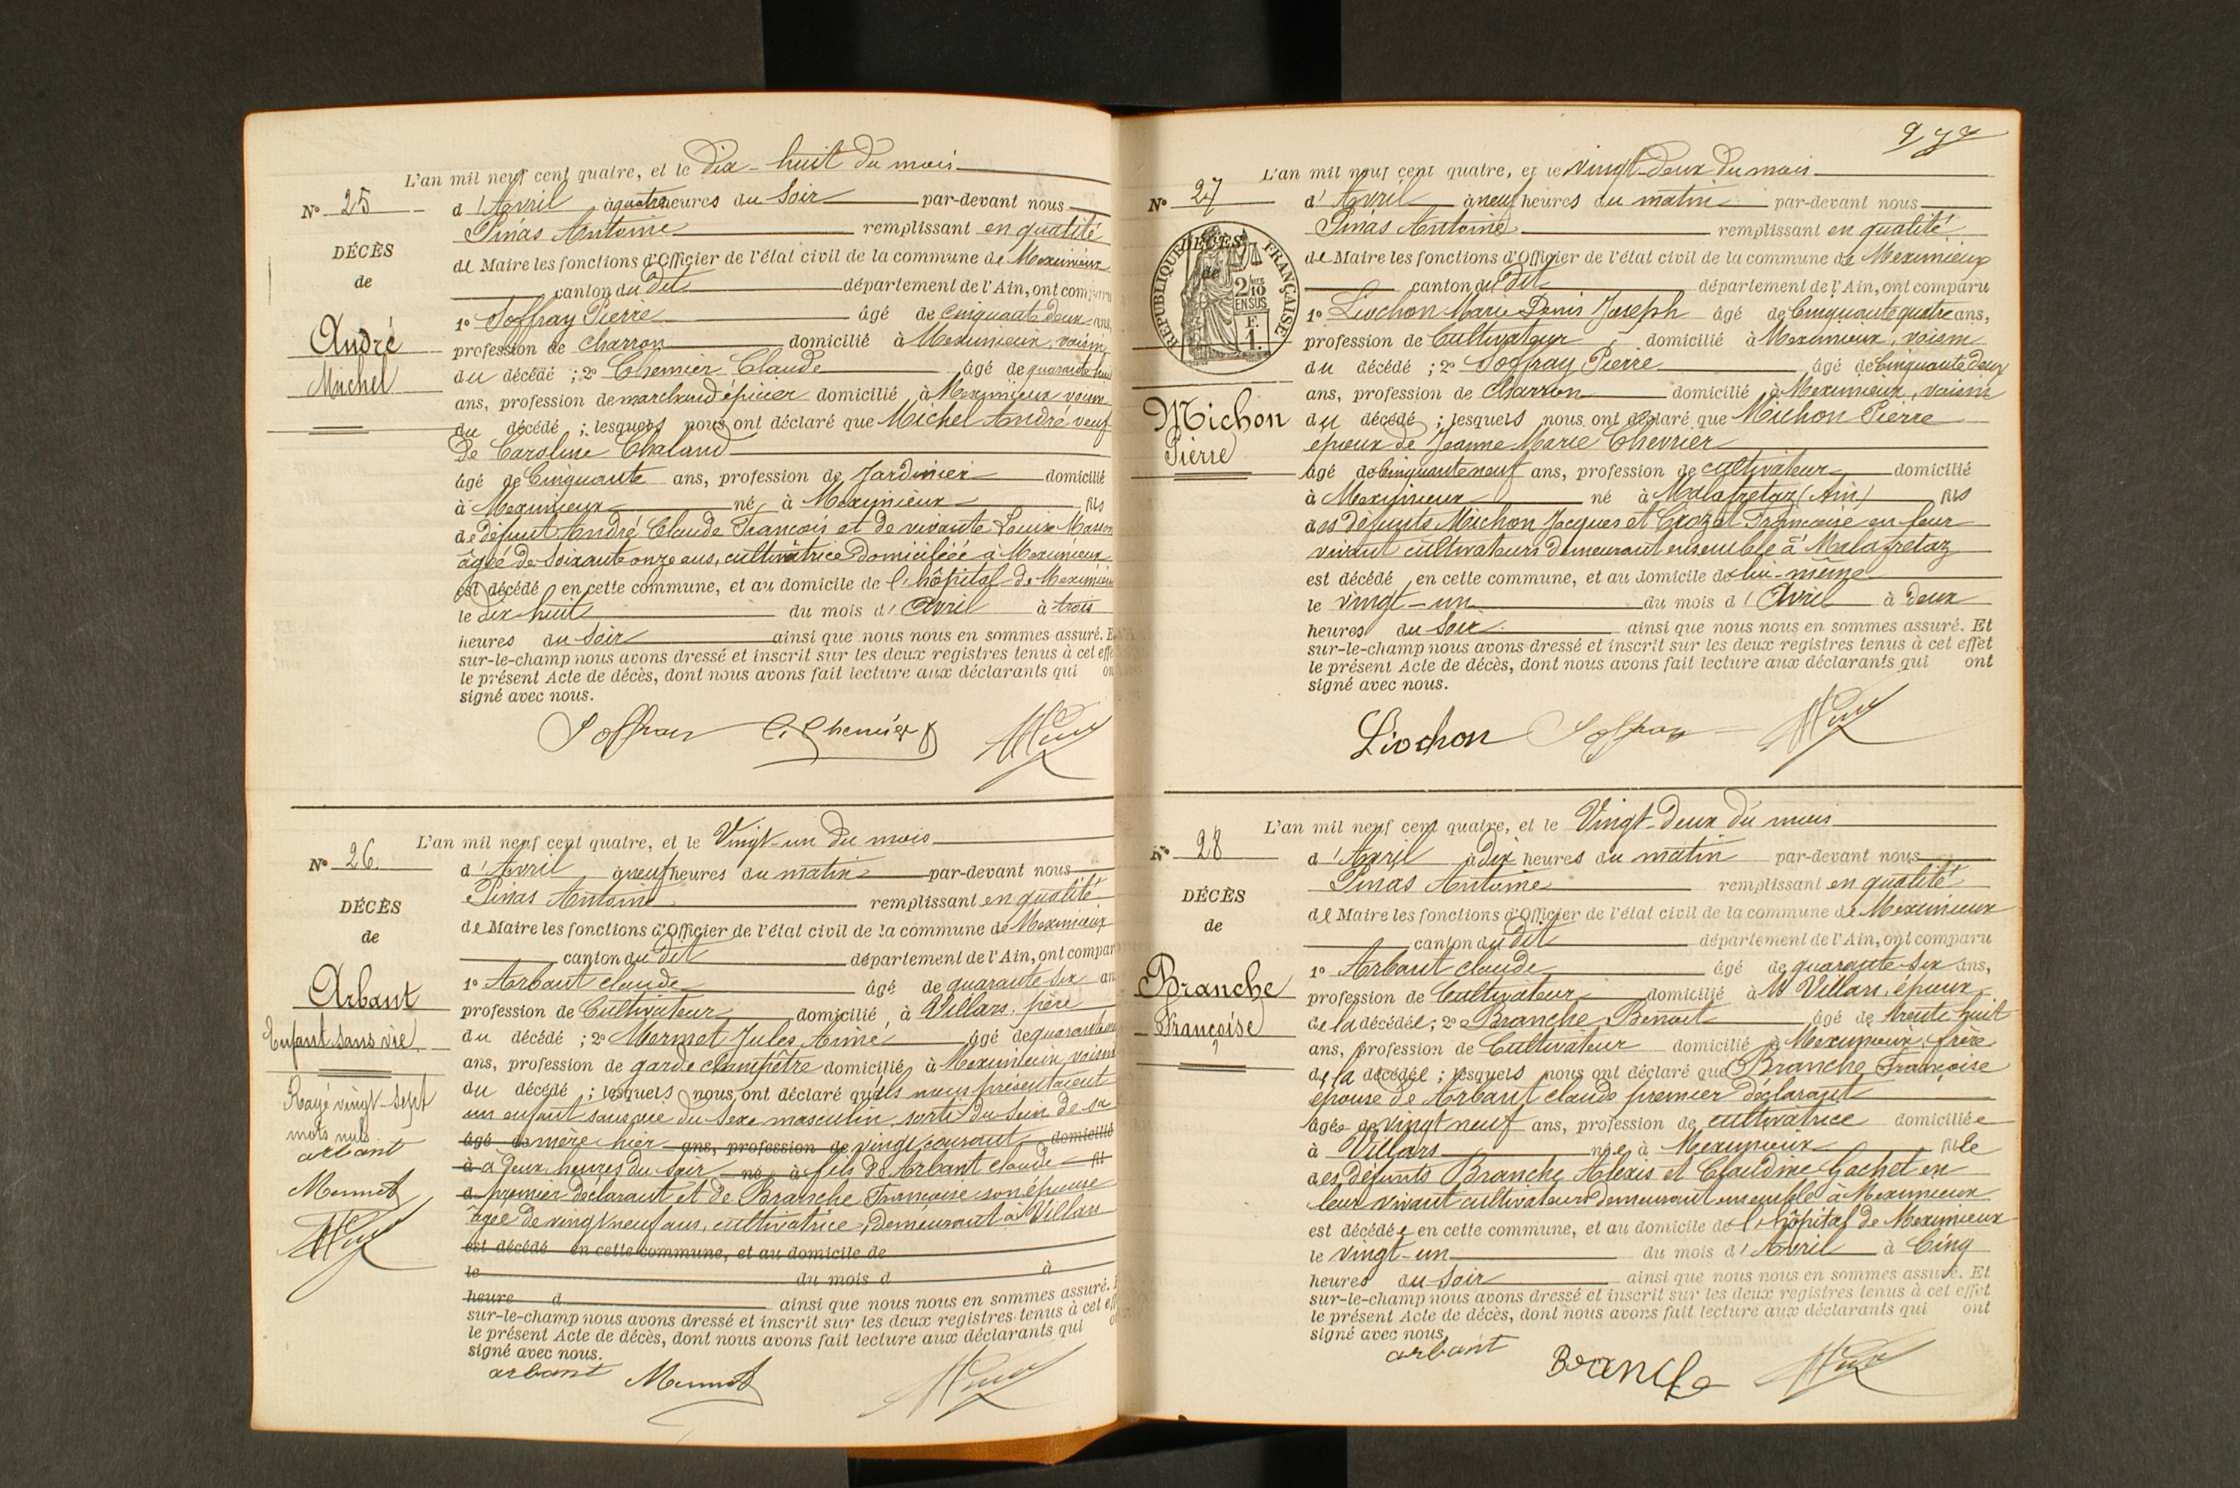 L'an mil neuf cent quatre, et le Dix-huit du mois
N° 25
d'Avril à quatre heures du Soir par-devant nous
Pinas Antoine remplissant en qualité
DÉCÈS
de Maire les fonctions d'Officier de l'état civil de la commune de Meximieux
de
canton du dit département de l'Ain, ont comparu
1° Soffray Pierre âgé de Cinquante deux ans,
André
profession de charron domicilié à Meximieux, voisin
Michel
du décédé ; 2° Chemier Claude âgé de quarante
ans, profession de marchand épicier domicilié à Meximieux voisin
du décédé ; lesquels nous ont déclaré que Michel André veuf
De Caroline Chaland
âgé de Cinquante ans, profession de Jardinier domicilié
à Meximieux né à Meximieux fils
de défunt André Claude François et de vivante Louise Masson
âgée de Soixante onze ans, cultivatrice domiciliée à Meximieux
est décédé en cette commune, et au domicile de l'hôpital de Meximieux
le dix huit du mois d'Avril à trois
heures du Soir ainsi que nous nous en sommes assuré. Et
sur-le-champ nous avons dressé et inscrit sur les deux registres tenus à cet effet
le présent Acte de décès, dont nous avons fait lecture aux déclarants qui ont
signé avec nous.
Soffray C. Chemier
L'an mil neuf cent quatre, et le Vingt-un du mois
N° 26
d'Avril à neuf heures du matin par-devant nous
Pinas Antoine remplissant en qualité
DÉCÈS
de Maire les fonctions d'Officier de l'état civil de la commune de Meximieux
de
canton du dit département de l'Ain, ont comparu
1° Arbant Claude âgé de quarante six ans
Arbant
profession de Cultivateur domicilié à Villars, père
Enfant sans vie
du décédé ; 2° Mermet Jules Aimé âgé de quarante
ans, profession de garde champêtre domicilié à Meximieux, voisin
du décédé ; lesquels nous ont déclaré qu'ils nous présentaient
un enfant sans vie du sexe masculin, sorti du sein de sa
âgé de mère hier ans, profession de vingt courant domicilié
à à deux heures du soir né à fils de Arbant claude fil
d premier déclarant et de Branche Françoise son épouse
âgée de vingt neuf ans, cultivatrice, demeurant à Villars
est décédé en cette commune, et au domicile de
le du mois d à
heure d ainsi que nous nous en sommes assuré.
sur-le-champ nous avons dressé et inscrit sur les deux registres tenus à cet eff
le présent Acte de décès, dont nous avons fait lecture aux déclarants qui
signé avec nous.
Rayé vingt-sept
mots nuls
arbant
Mermet
arbant Mermet
977
L'an mil neuf cent quatre, et le vingt-deux du mois
N° 27
d'Avril à neuf heures du matin par-devant nous
Pinas Antoine remplissant en qualité
DÉCÈS
de
RÉPUBLIQUE FRANÇAISE
2/10 EN SUS
F. 1.
de Maire les fonctions d'Officier de l'état civil de la commune de Meximieux
canton du dit département de l'Ain, ont comparu
1° Liochon Marie Denis Joseph âgé de Cinquante quatre ans,
profession de Cultivateur domicilié à Meximieux, voisin
du décédé ; 2° Soffray Pierre âgé de Cinquante Deux
ans, profession de Charron domicilié à Meximieux, voisin
Michon
Pierre
du décédé ; lesquels nous ont déclaré que Michon Pierre
époux de Jeanne Marie Chevrier
âgé de Cinquante neuf ans, profession de cultivateur domicilié
à Meximieux né à Malafretaz (Ain) fils
des défunts Michon Jacques et Crozat Françoise en leur
vivant cultivateurs demeurant ensemble à Malafretaz
est décédé en cette commune, et au domicile de lui-même
le vingt-un du mois d'Avril à deux
heures du Soir ainsi que nous nous en sommes assuré. Et
sur-le-champ nous avons dressé et inscrit sur les deux registres tenus à cet effet
le présent Acte de décès, dont nous avons fait lecture aux déclarants qui ont
signé avec nous.
Liochon Soffray
L'an mil neuf cent quatre, et le Vingt-Deux du mois
N° 28
d'Avril à Dix heures du matin par-devant nous
Pinas Antoine remplissant en qualité
DÉCÈS
de Maire les fonctions d'Officier de l'état civil de la commune de Meximieux
de
canton du dit département de l'Ain, ont comparu
1° Arbant claude âgé de quarante-six ans,
Branche
profession de Cultivateur domicilié à Villars, époux
Françoise
de la décédée ; 2° Branche Benoit âgé de trente huit
ans, profession de Cultivateur domicilié à Meximieux, frère
de la décédée ; lesquels nous ont déclaré que Branche Françoise
épouse de Arbant claude premier déclarant
âgée de vingt neuf ans, profession de cultivatrice domiciliée
à Villars née à Meximieux fille
des défunts Branche Alexis et Claudine Gachet en
leur vivant cultivateurs demeurant ensemble à Meximieux
est décédée en cette commune, et au domicile de l'hôpital de Meximieux
le vingt-un du mois d'Avril à Cinq
heures du Soir ainsi que nous nous en sommes assuré. Et
sur-le-champ nous avons dressé et inscrit sur les deux registres tenus à cet effet
le présent Acte de décès, dont nous avons fait lecture aux déclarants qui ont
signé avec nous
arbant Branche